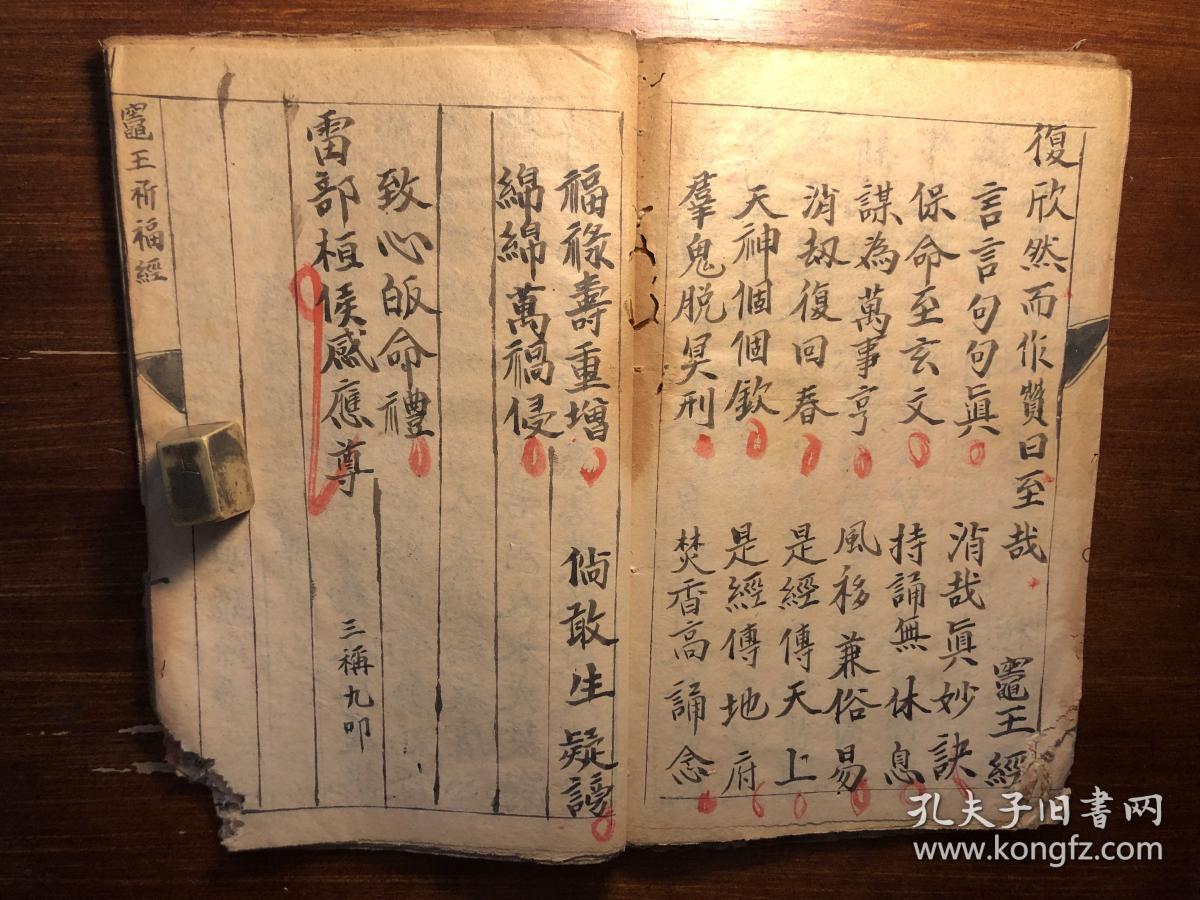 復欣然而作贊曰至哉
竈王經
言言句句眞
消哉眞妙訣
保命至玄文
持誦無休息
謀為萬事亨
風移兼俗易
消刼復回春
是經傳天上
天神個個欽
是經傳地府
羣鬼脱冥刑
焚香高誦念
福祿壽重增
倘敢生疑謗
綿綿萬禍侵
致心皈命禮
三稱九叩
雷部桓侯感應尊
竈王祈福經
孔夫子旧书网
www.kongfz.com